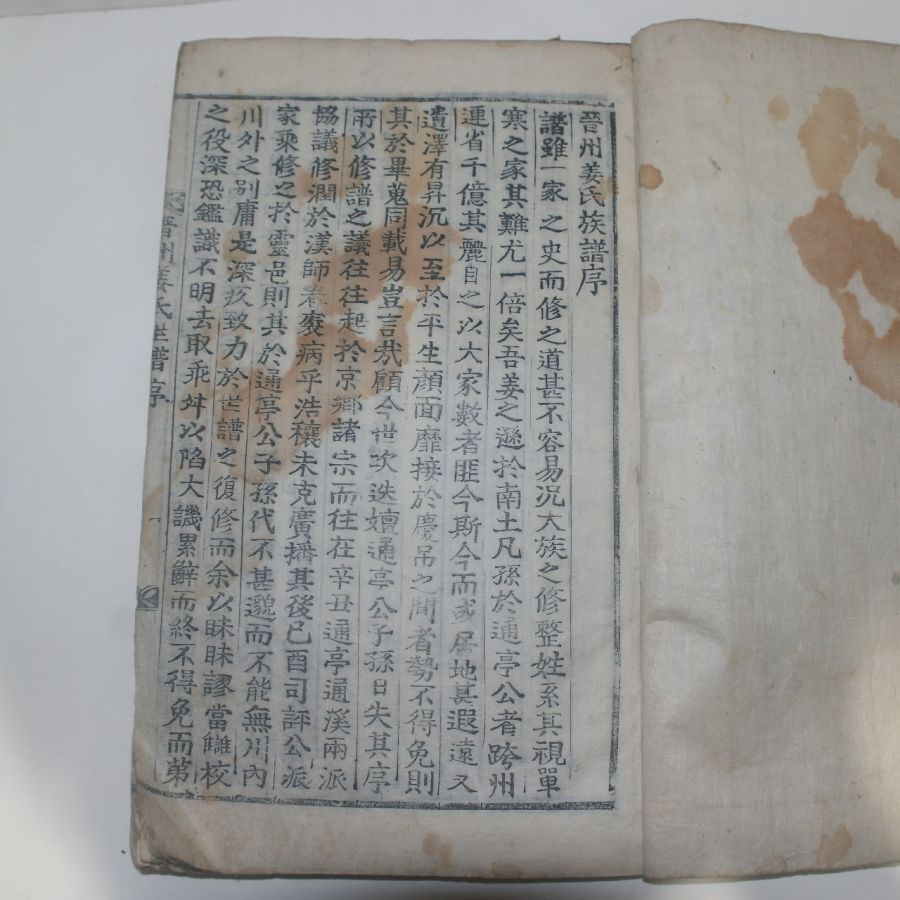 晉州姜氏族譜序
譜雖一家之史而修之道甚不容易况大族之修整姓系其視單
寒之家其難尤一倍矣吾姜之遜於南土凡孫於通亭公者跨州
連省千億其麗自之以大家數者匪今斯今而或居地甚遐遠又
遺澤有昇沉以至於平生顏面靡接於慶吊之間者勢不得免則
其於畢蒐同載易豈言㦲顧今世次迭嬗通亭公子孫日失其序
所以修譜之議往往起於京鄉諸宗而往在辛丑通亭通溪兩派
協議修潤於漢師卷袠病乎浩穰未克廣播其後己酉司評公派
家乘修之於靈邑則其於通亭公子孫代不甚邈而不能無川內
川外之別庸是深疚致力於世譜之復修而余以昧昧謬當讎校
之役深恐鑑識不明去取乖舛以陷大譏累辭而終不得免而第
晋州姜氏世譜序 一